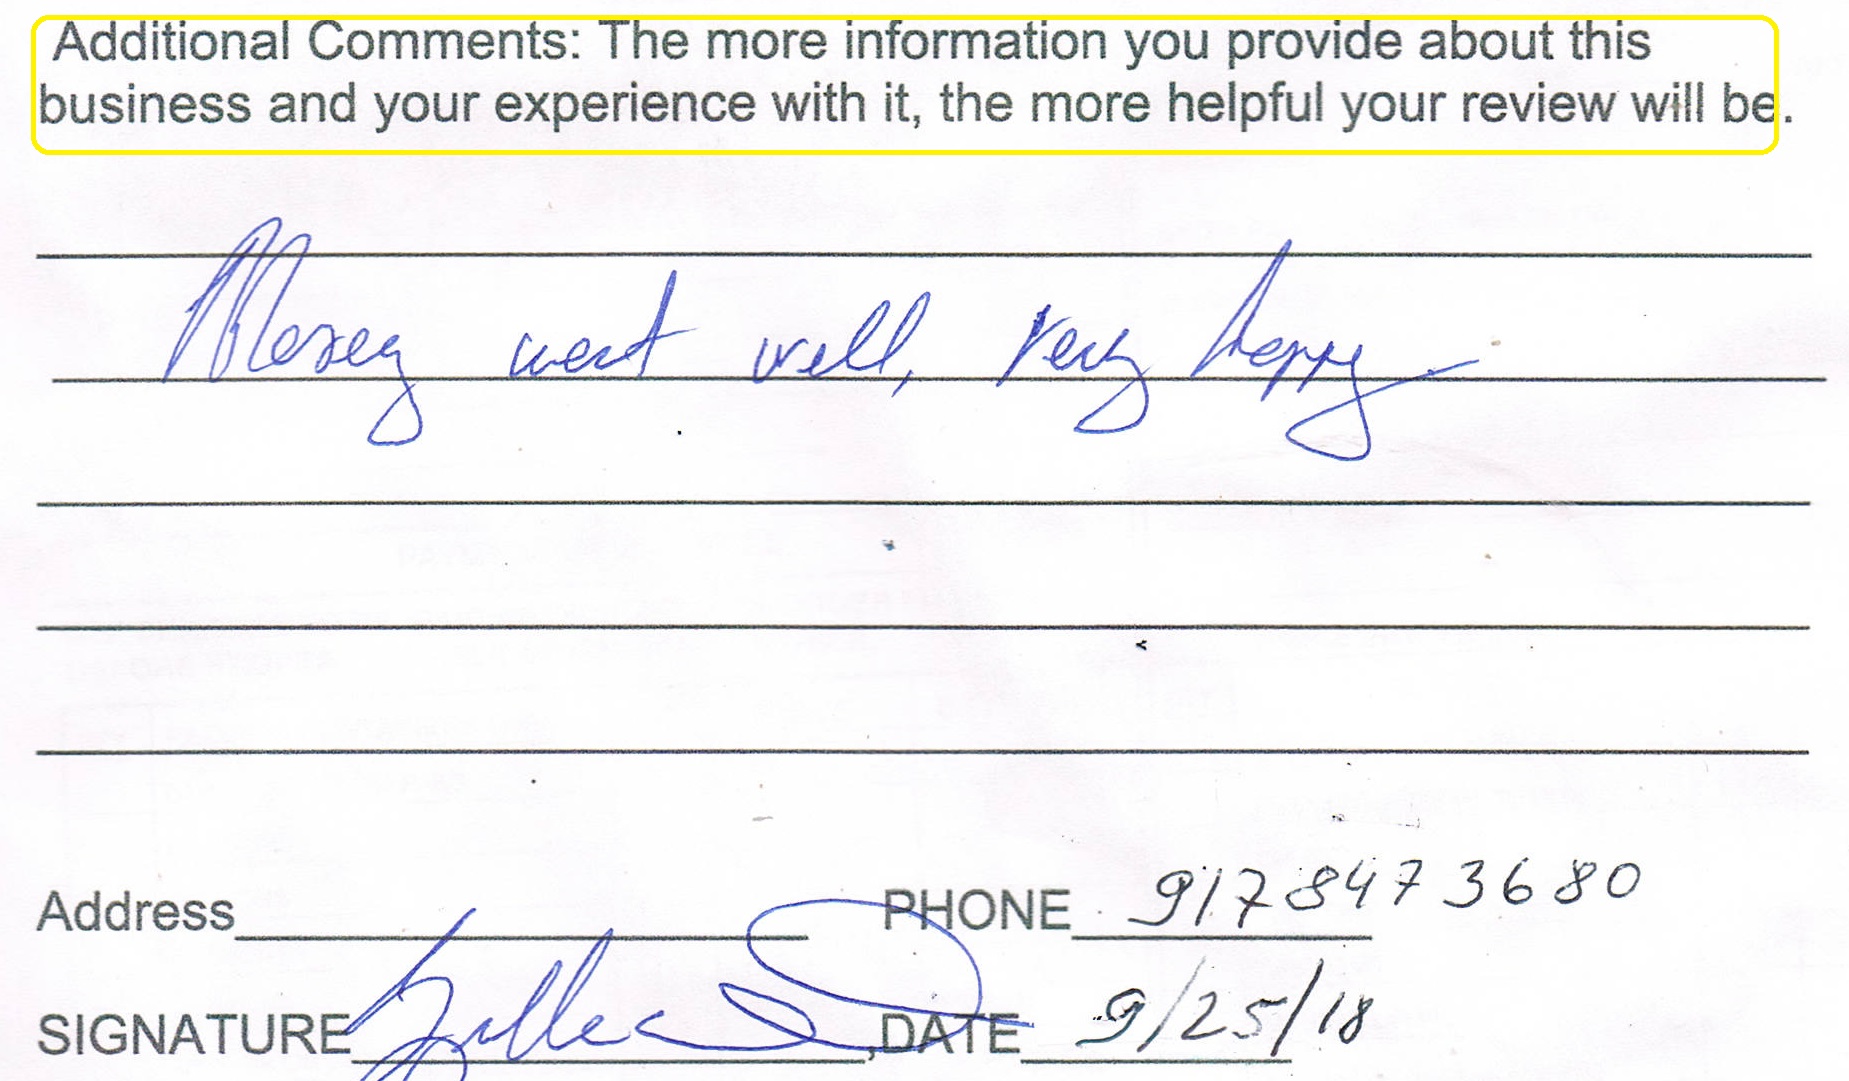 Additional Comments: The more information you provide about this
business and your experience with it, the more helpful your review will be.
went well, very happy
Address PHONE 917 847 3680
SIGNATURE ,DATE 9/25/18